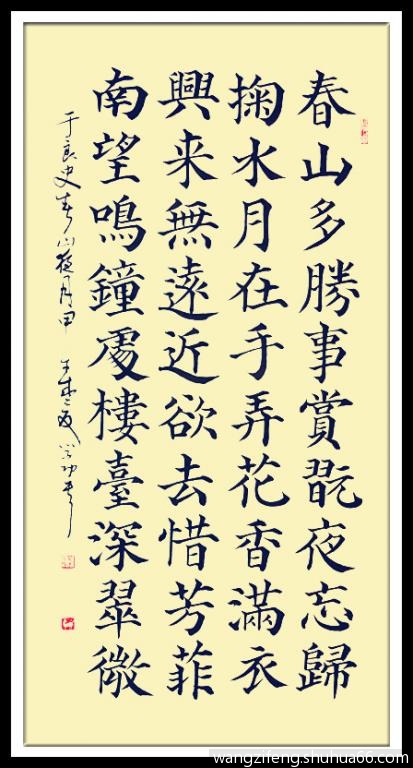 春山多勝事賞翫夜忘歸
掬水月在手弄花香滿衣
興来無遠近欲去惜芳菲
南望鳴鐘處樓臺深翠微
于良史春山夜月
wangzifeng.shuhua66.com